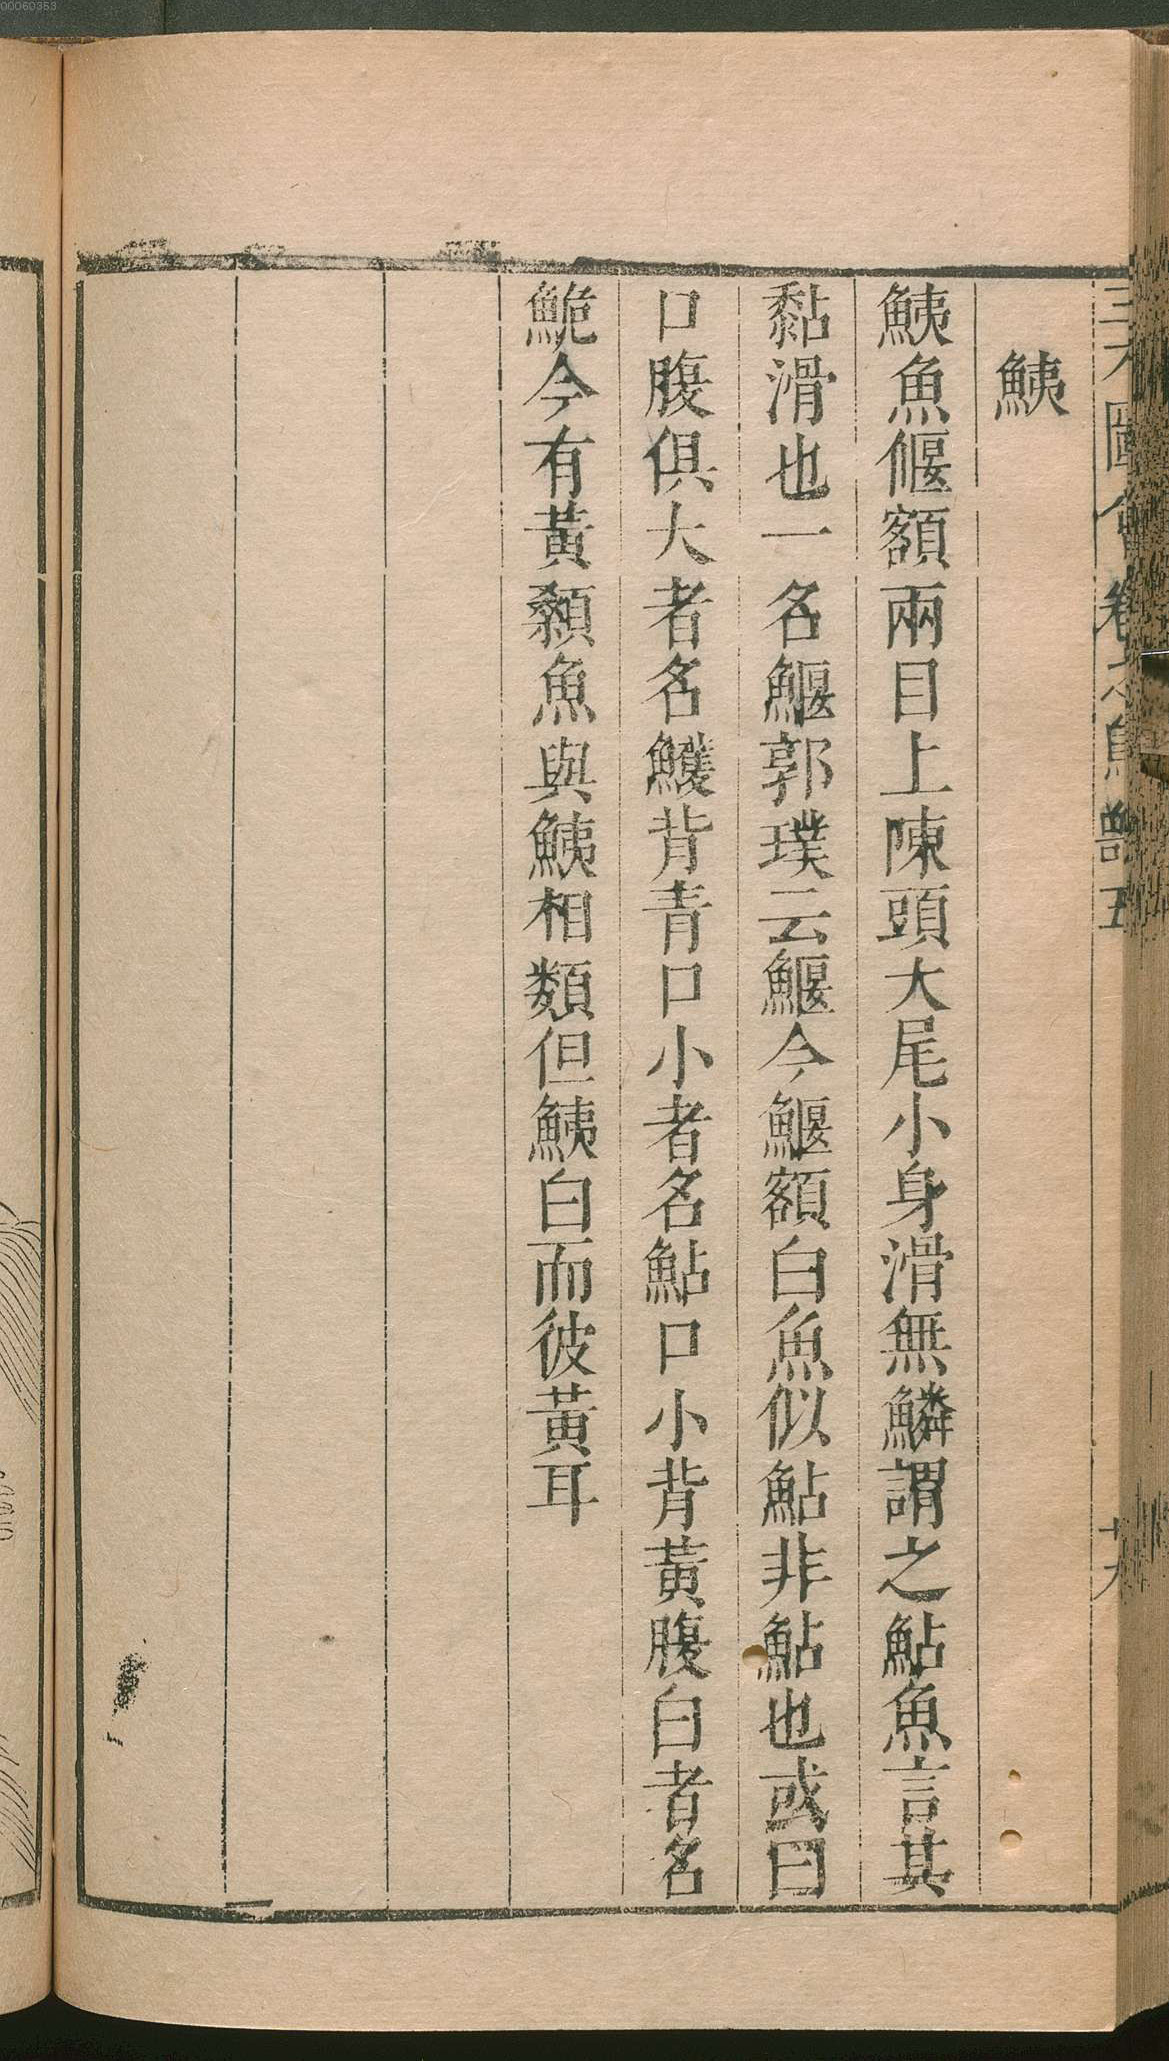 鮧
鮧魚偃額兩目上陳頭大尾小身滑無鱗謂之鮎魚言其
黏滑也一名鰋郭璞云鰋今鰋額白魚似鮎非鮎也或曰
口腹俱大者名鱯背青口小者名鮎口小背黃腹白者名
鮠今有黃顙魚與鮧相類但鮧白而彼黃耳
00060353